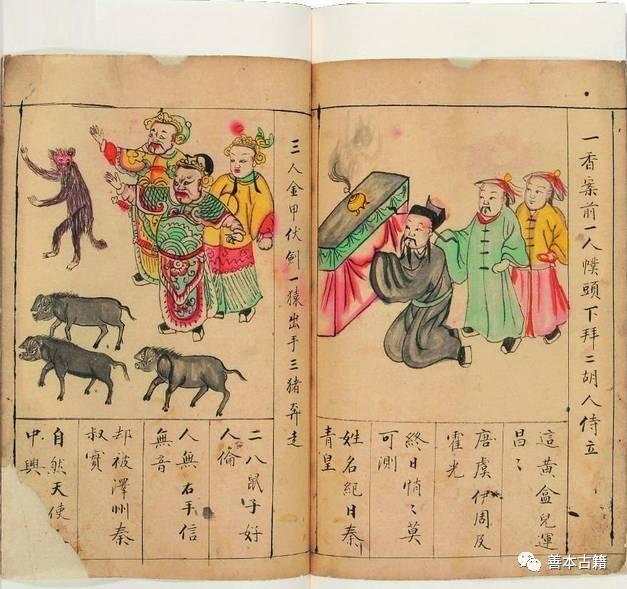 一香案前一人幞頭下拜二胡人侍立
這黃盒兒運
昌〻
唐虞伊周及
霍光
終日悄〻莫
可測
姓名紀日秦
青皇
三人金甲伏劍一猿出手三猪奔走
二八鼠好
人倫
人無右手信
無音
却被澤州秦
叔寶
自然天使
中興
善本古籍